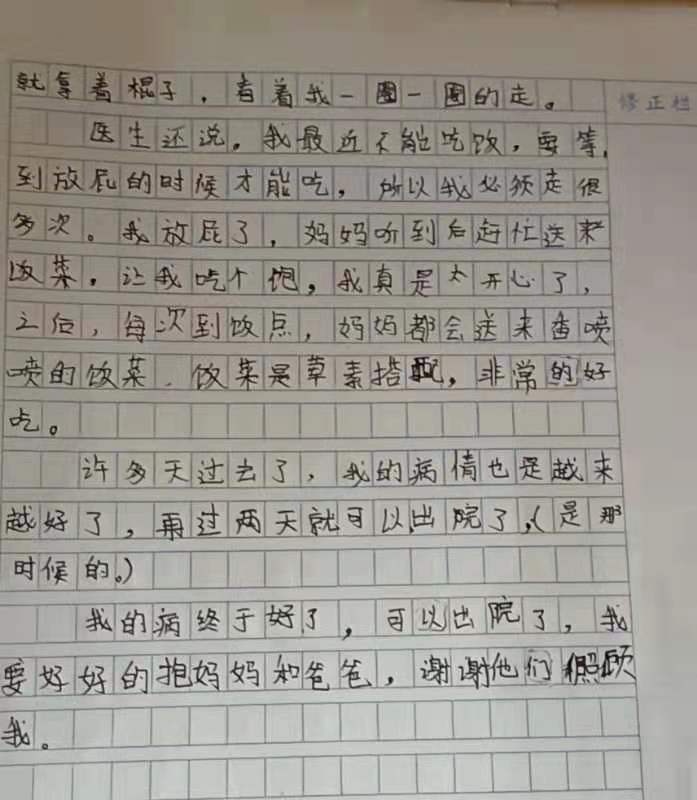 就拿着棍子，看着我一圈一圈的走。
修正栏
医生还说，我最近不能吃饭，要等，
到放屁的时候才能吃，所以我必须走很
多次。我放屁了，妈妈听到后赶忙送来
饭菜，让我吃个饱，我真是太开心了，
之后，每次到饭点，妈妈都会送来香喷
喷的饭菜，饭菜是草素搭配，非常的好
吃。
许多天过去了，我的病情也是越来
越好了，再过两天就可以出院了，（是那
时候的。）
我的病终于好了，可以出院了，我
要好好的抱妈妈和爸爸，谢谢他们照顾
我。